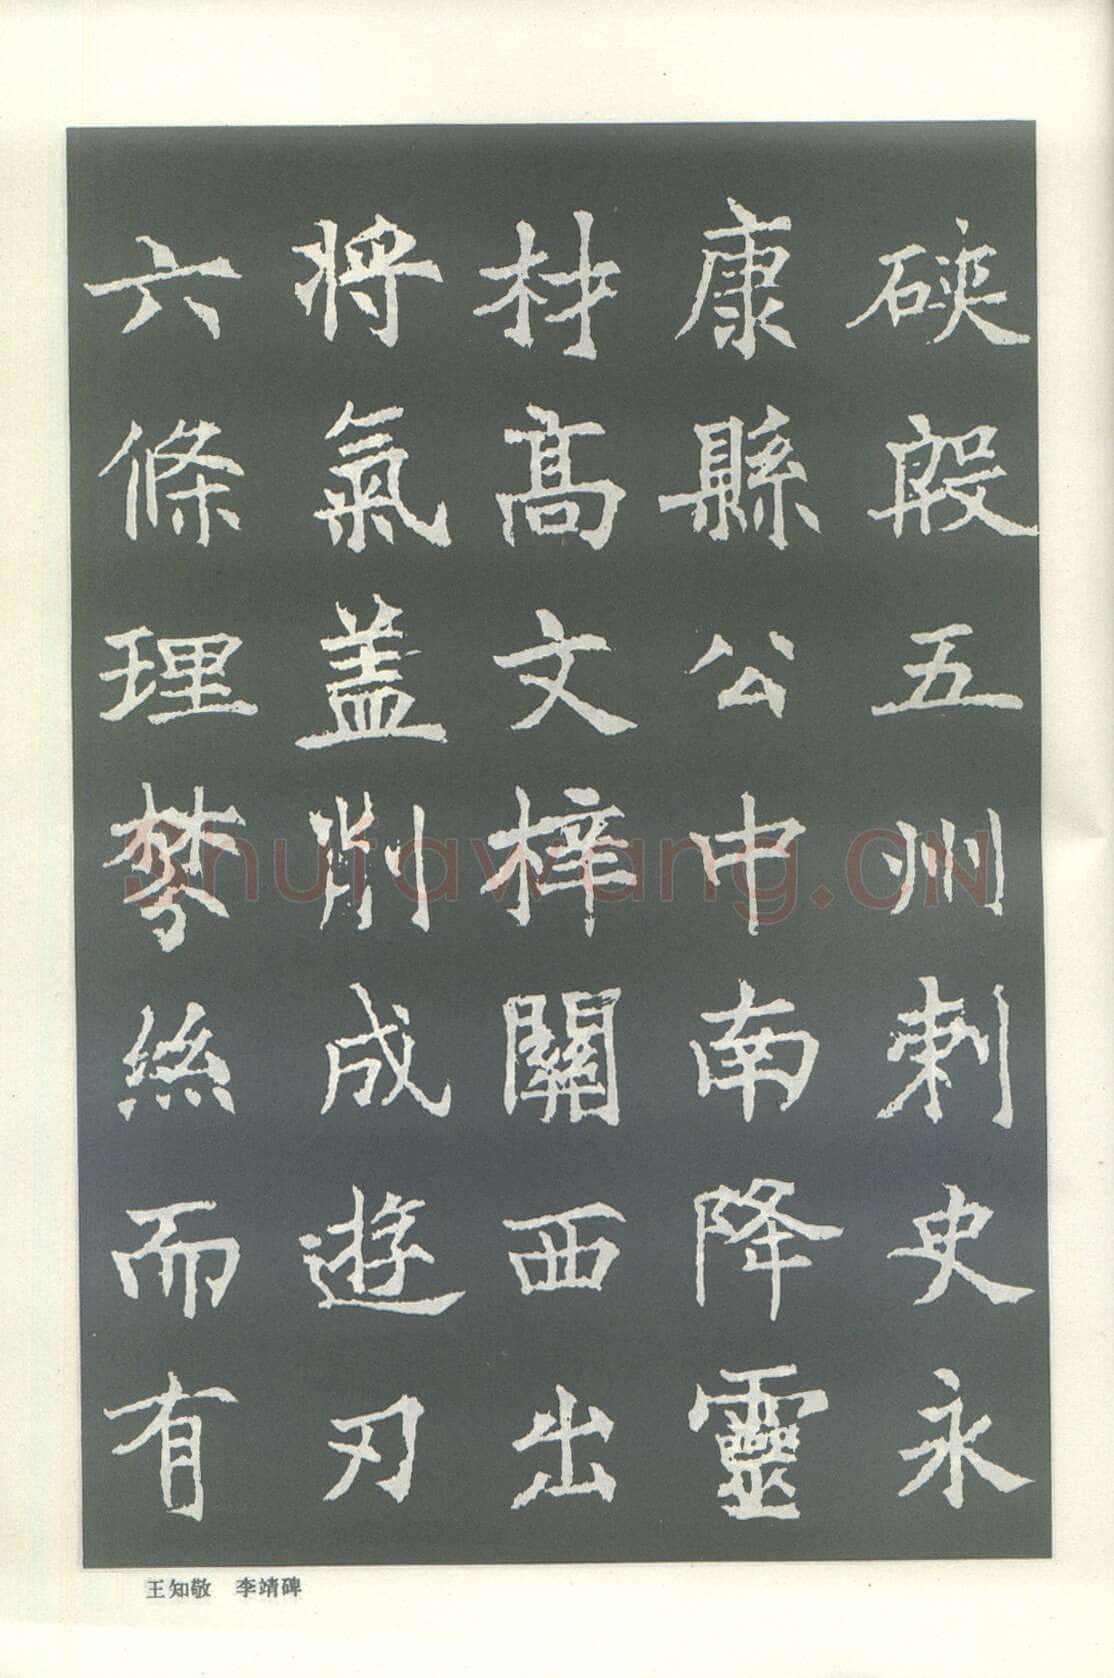 硤殷五州刺史永
康縣公中南降靈
材高文梓關西出
將氣盖削成遊刃
六條理棼絲而有
shufawang.CN
王知敬 李靖碑